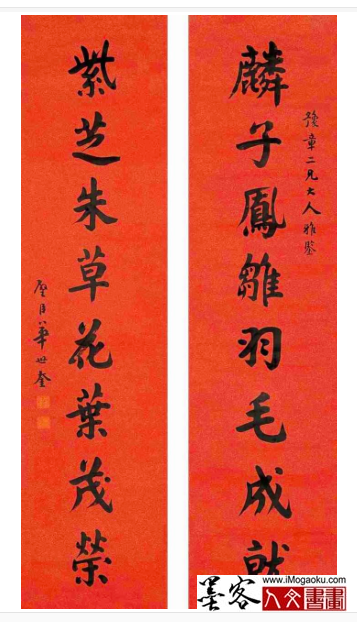 豫章二兄大人雅鑒
麟子鳳雛羽毛成就
紫芝朱草花葉茂榮
華世奎
墨客
www.iMogaoku.com
人文書畫